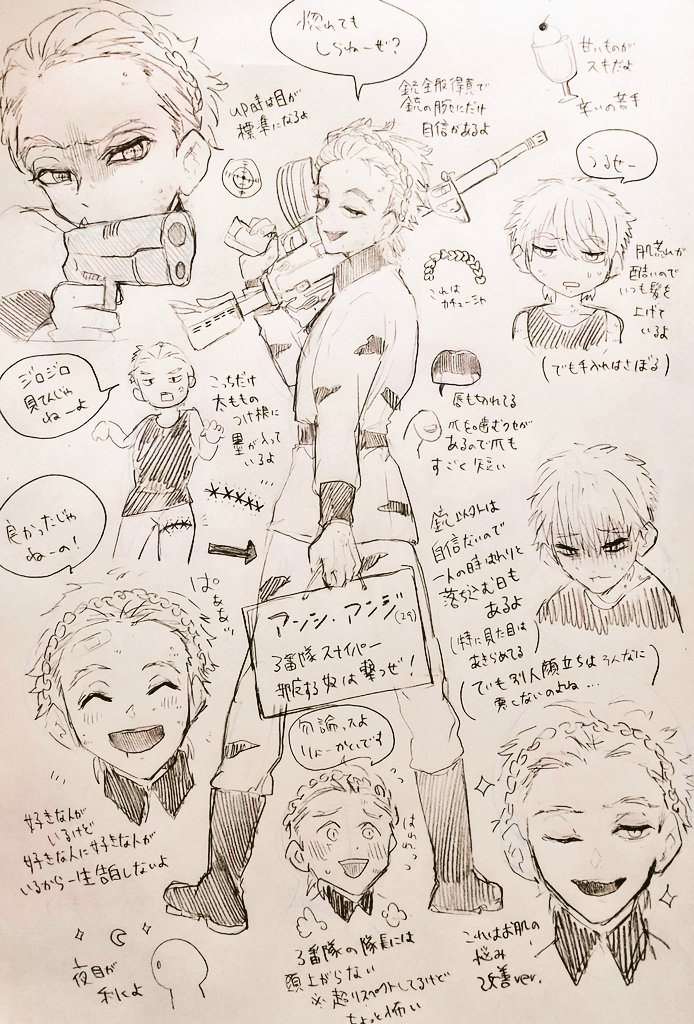 惚れても
しらねーぜ?
up時は目が
標準になるよ
銃全般得意で
銃の腕にだけ
自信があるよ
甘いものが
スキだよ
辛いの苦手
うるせー
肌荒れが
酷いので
いつも髪を
上げて
いるよ
(でも手入れはさぼる)
これは
カチューシャ
ジロジロ
見てんじゃ
ねーよ
こっちだけ
太ももの
つけ根に
墨が入って
いるよ
唇も切れてる
爪を噛むクセが
あるので爪も
すごく短い
良かったじゃ
ねーの!
ぱあぁっ
銃以外は
自信ないので
一人の時わりと
落ち込む日も
あるよ
(特に見た目は
あきらめてる)
(でも別人顔立ちはそんなに
悪くないのよね…)
アンシ・アンジ(29)
3番隊スナイパー
邪魔する奴は撃つぜ!
勿論っスよ
はわわっ
好きな人が
いるけど
好きな人に好きな人が
いるから一生告白しないよ
夜目が
利くよ
3番隊の隊長には
頭上がらない
※超リスペクトしてるけど
ちょっと怖い
これはお肌の
悩み
改善ver.